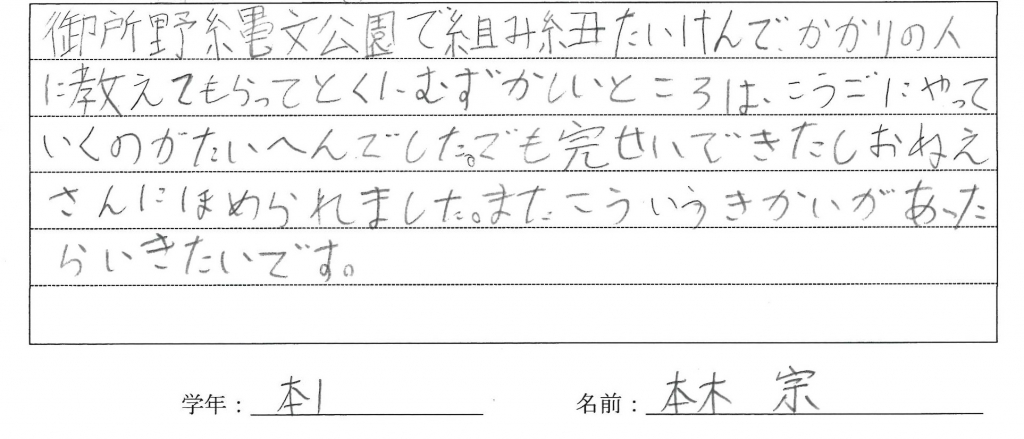 御所野縄文公園で組み紐たいけんで、かかりの人
に教えてもらってとくにむずかしいところは、こうごにやって
いくのがたいへんでした。でも完せいできたしおねえ
さんにほめられました。またこういうきかいがあった
らいきたいです。
学年：本1 名前：本木 宗